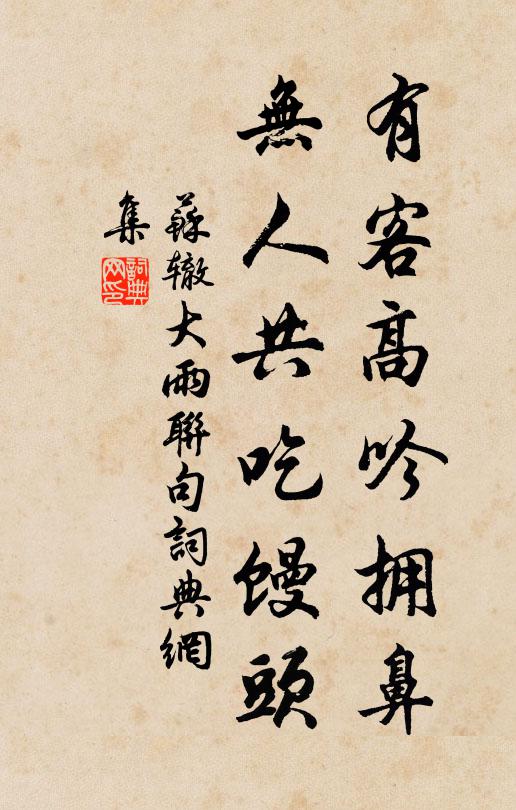 有客高吟拥鼻
無人共吃馒頭
蘇辙大雨聯句詞典網
集
詞典网印